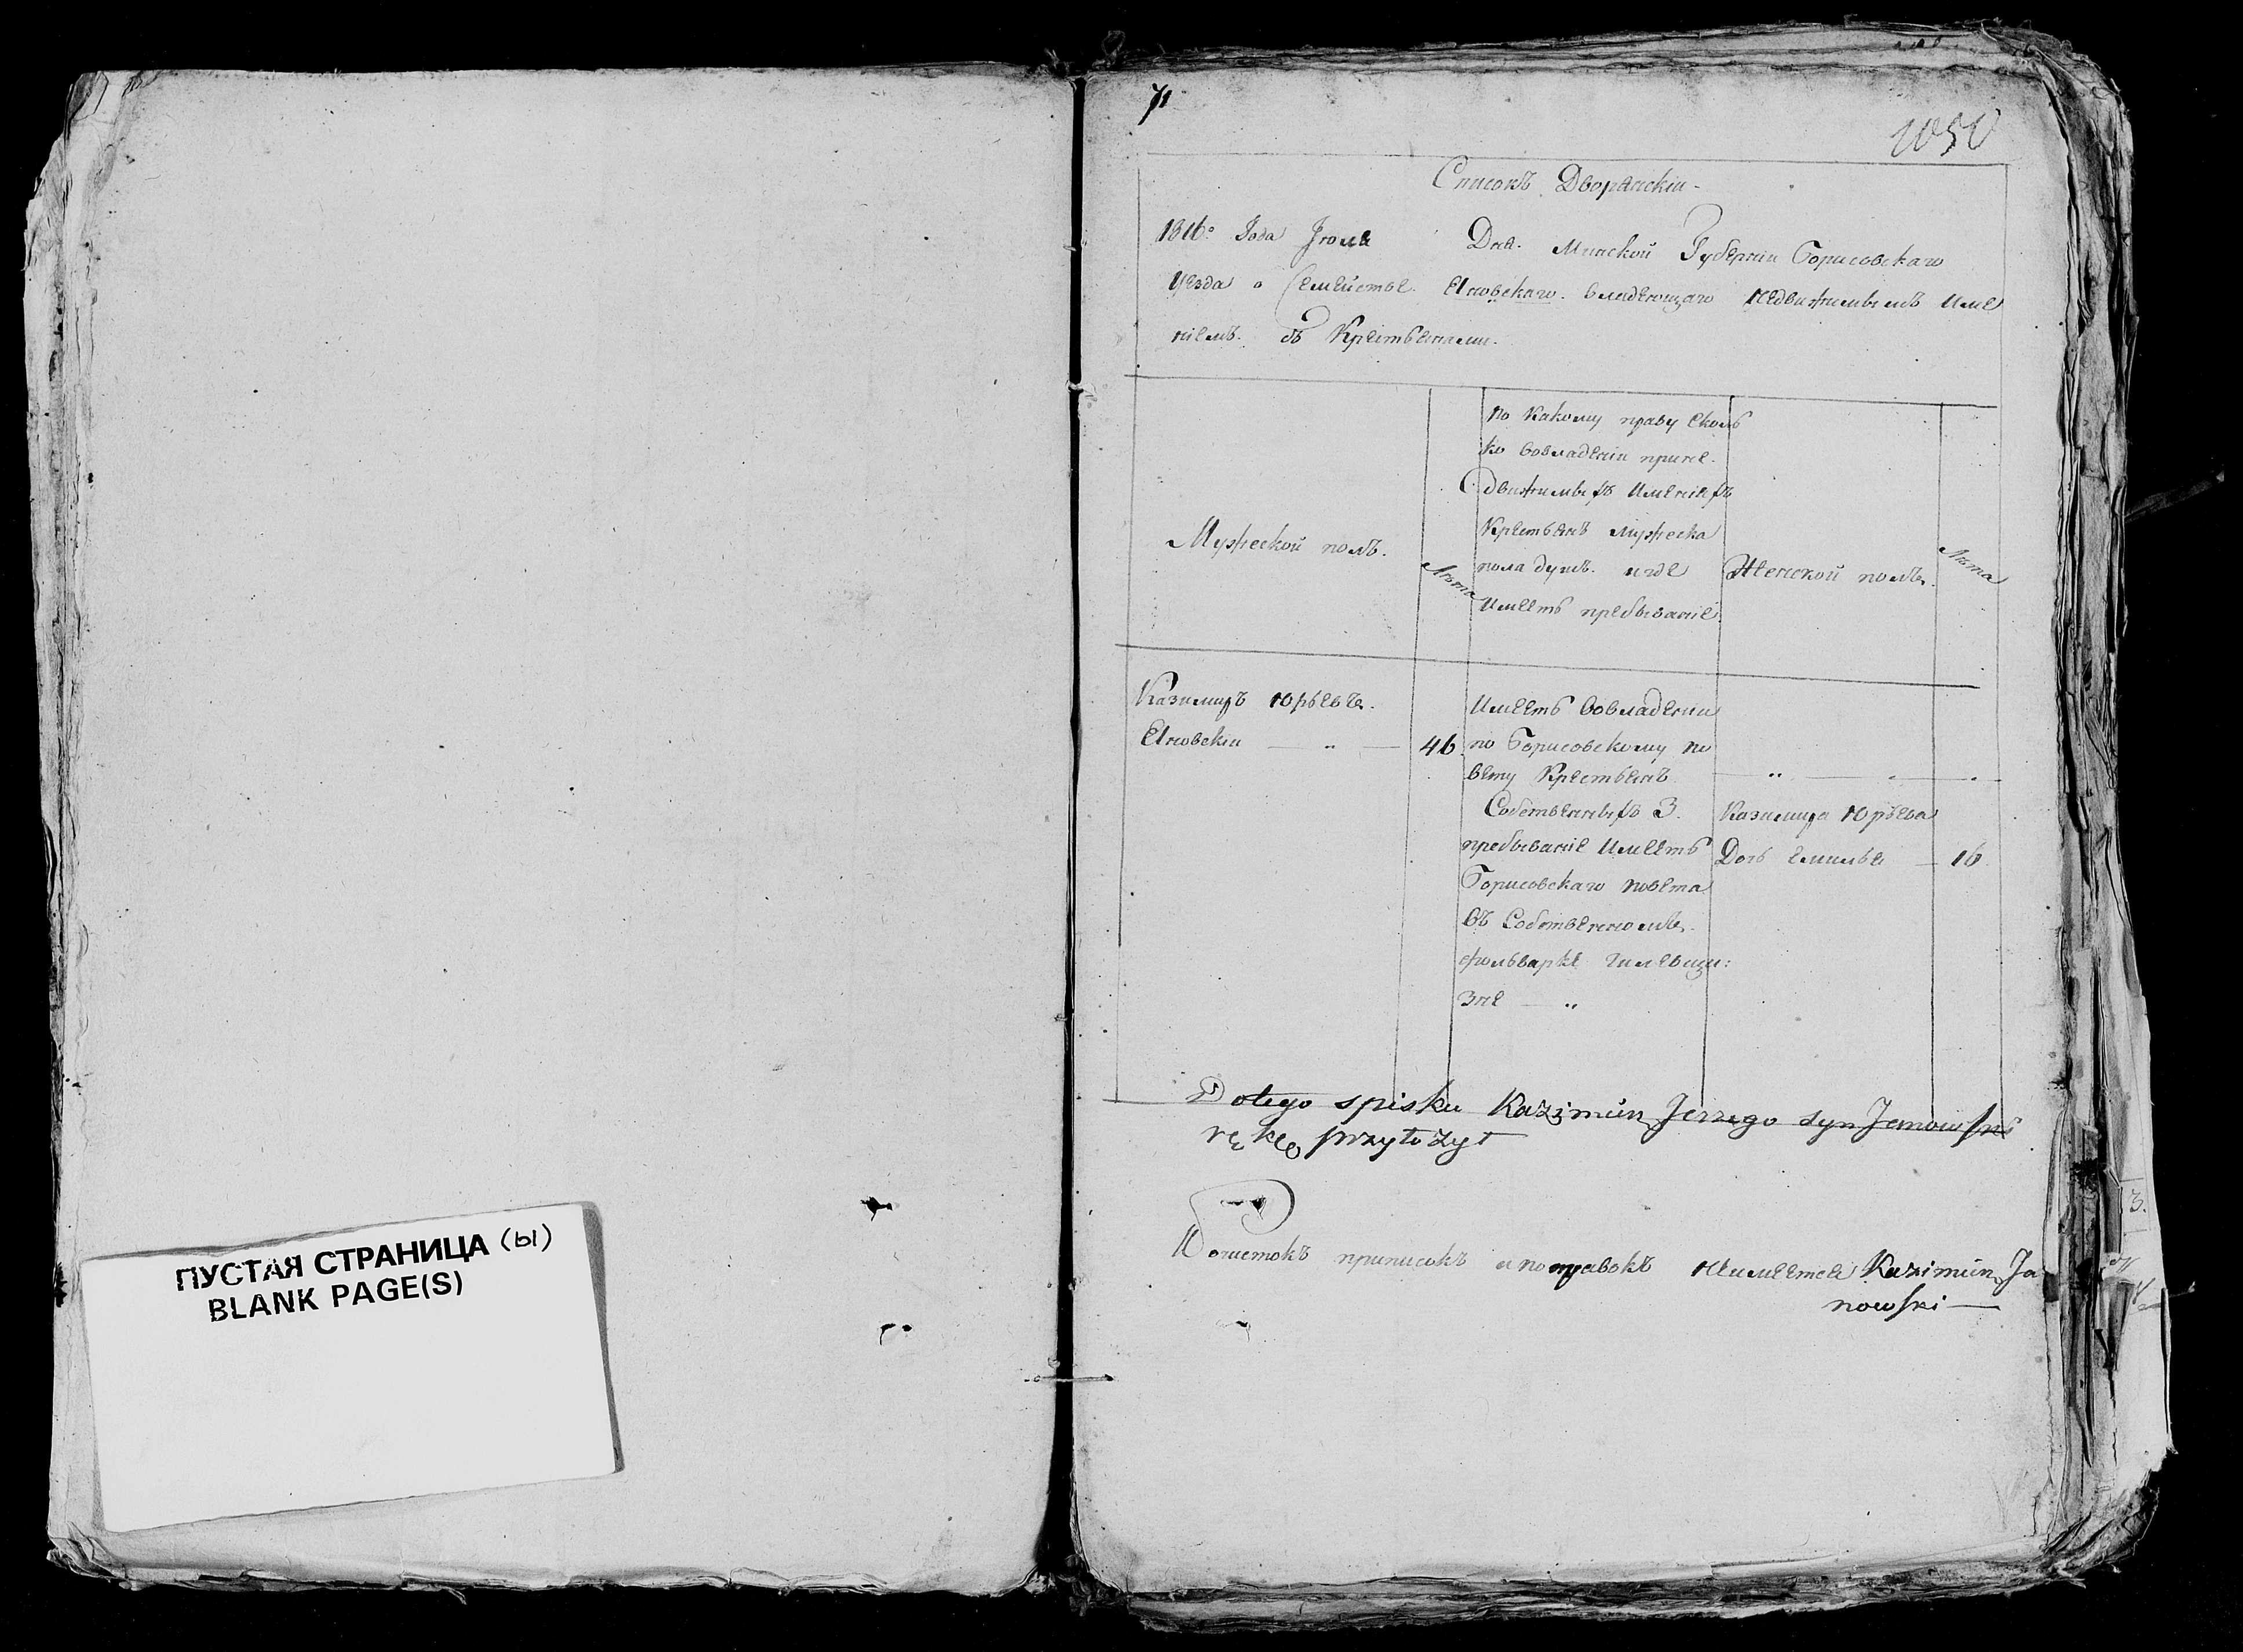 71
1050
Списокъ Дворянскiи
1816º Года Iюля Дня. Минской Губернiи Борисовскаго
Уезда о Семействе Яновскаго. владеющаго недвижимымъ име
нiемъ. съ Крестьянами.
Мужеской полъ.
Лѣта
по какому праву сколь
ко вовладенiи при не
движимыхъ именiяхъ
Крестьянъ мужеска
пола душъ. и где
имеетъ пребыванiе
Женской полъ.
Лѣта
Казимиръ Юрьевъ.
Яновскiи — „ — 46
имеетъ вовладенiи
по Борисовскому по
вету Крестьянъ
Собственныхъ 3.
пребыванiе имеетъ
Борисовскаго повета
въ Собственномъ
фольварке
зне — „
— „ — „ — „ —
Казимира Юрьева
Дочь Емилья — 16
Do tego spisku Kazimiirz Jerzego syn Janowski
rękę przyłożył
Почистокъ приписокъ и поправокъ неимеется Kazimiirz Ja
nowski —
3.
ПУСТАЯ СТРАНИЦА (ы)
BLANK PAGE(S)